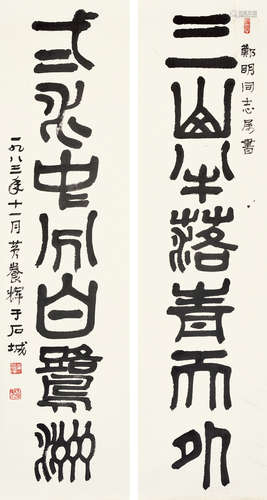 鄭明同志属書
三山半落青天外
弍水中分白鷺洲
一九八三年十一月黄養輝于石城